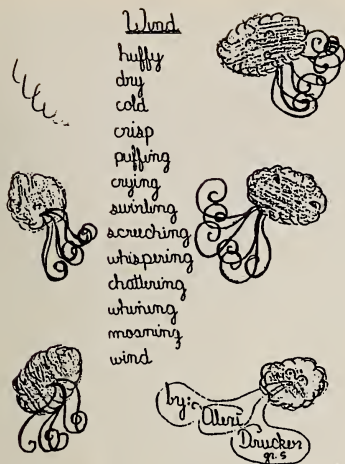 Wind
huffy
dry
cold
crisp
puffing
crying
swirling
screeching
whispering
chattering
whining
moaning
wind
by:
Aleri
Drucker
gr. 5